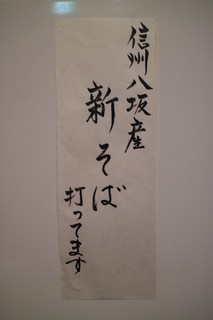 信州八坂産
新そば
打ってます